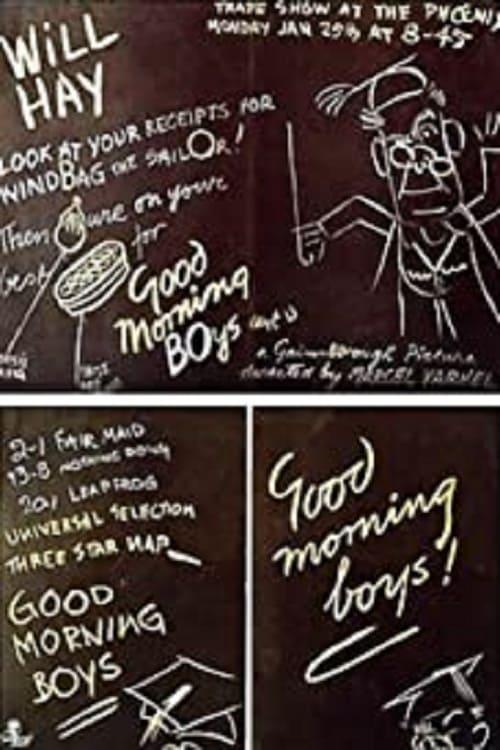 TRADE SHOW AT THE PHOENIX
MONDAY JAN 25th AT 8-45
WILL
HAY
LOOK AT YOUR RECEIPTS FOR
WINDBAG THE SAILOR!
Then on your
best for
Good
Morning
BOYS
a Gainsborough Picture
directed by MARCEL VARNEL
2-1 FAIR MAID
13-8 NOTHING DOING
20/1 LEAPFROG
UNIVERSAL SELECTION
THREE STAR NAP
GOOD
MORNING
BOYS
Good
morning
boys!